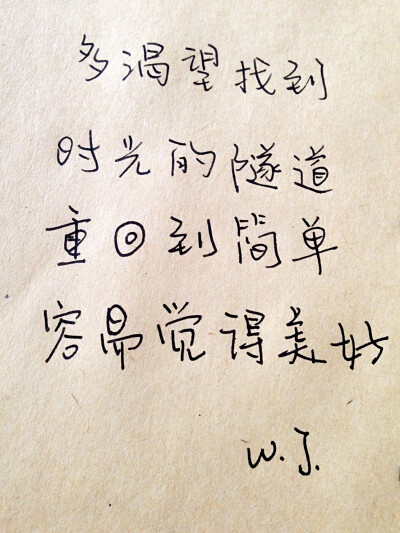 多渴望找到
时光的隧道
重回到简单
容易觉得美好
W.J.